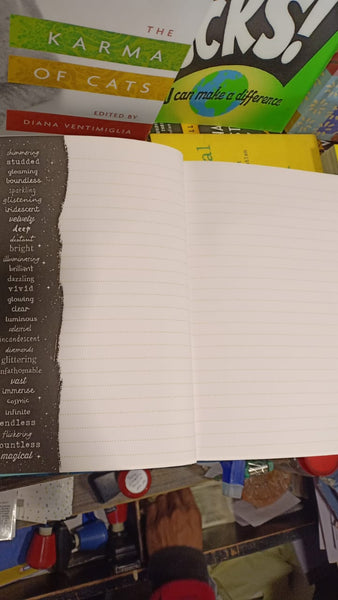 THE
KARMA
OF CATS
EDITED BY
DIANA VENTIMIGLIA
CKS!
I can make a difference
al
shimmering
studded
gleaming
boundless
sparkling
glistening
iridescent
velvety
deep
distant
bright
illuminating
brilliant
dazzling
vivid
glowing
clear
luminous
celestial
incandescent
diamonds
glittering
unfathomable
vast
immense
cosmic
infinite
endless
flickering
countless
magical